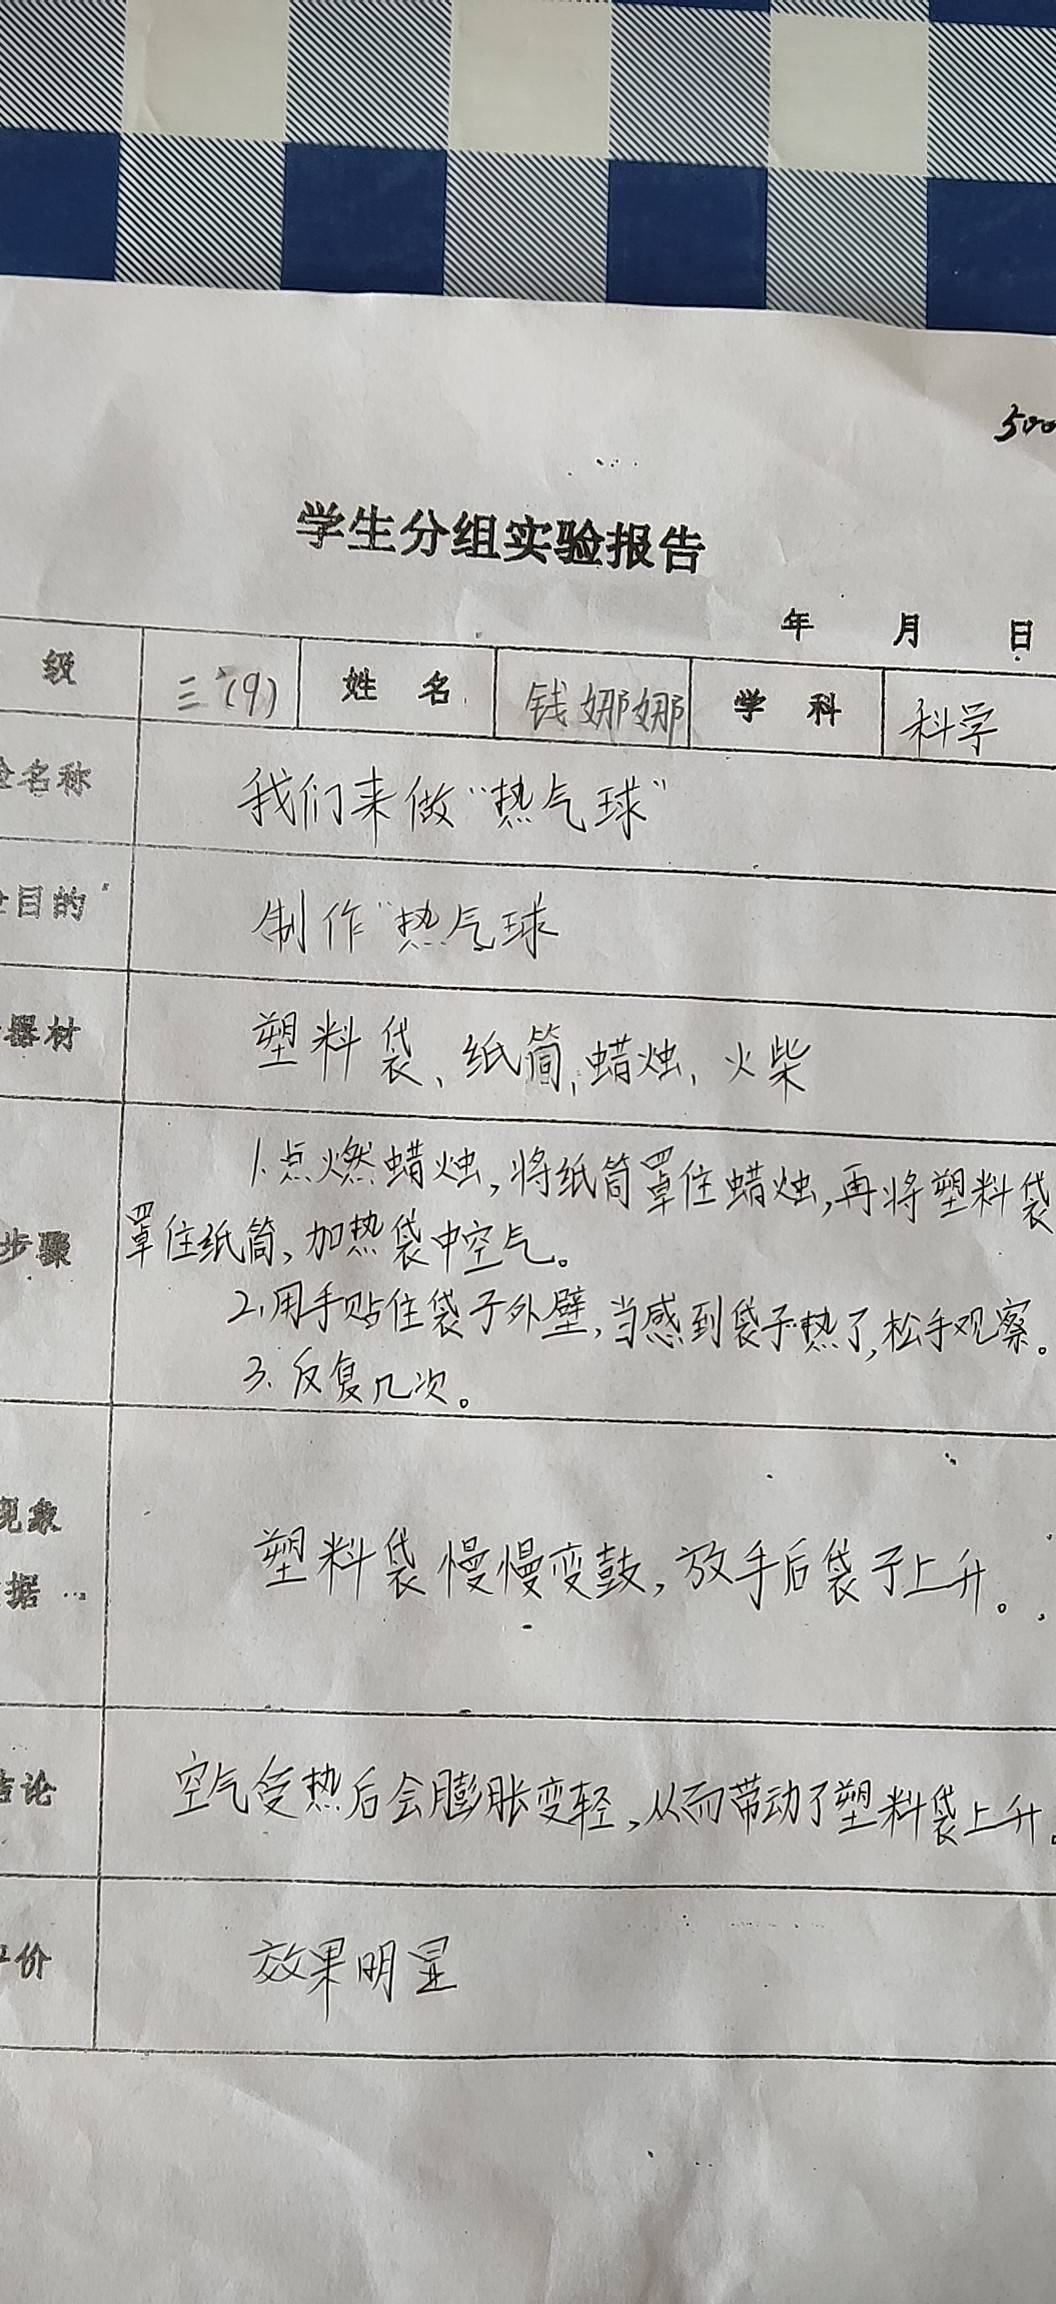 500
学生分组实验报告
年 月 日
级 三(9) 姓 名 钱娜娜 学 科 科学
名称 我们来做“热气球”
目的 制作“热气球
器材 塑料袋、纸筒,蜡烛、火柴
1.点燃蜡烛,将纸筒罩住蜡烛,再将塑料袋
步骤 罩住纸筒,加热袋中空气。
2.用手贴住袋子外壁,当感到袋子热了,松手观察。
3.反复几次。
现象
据 塑料袋慢慢变鼓,放手后袋子上升。
结论 空气受热后会膨胀变轻,从而带动了塑料袋上升。
价 效果明显